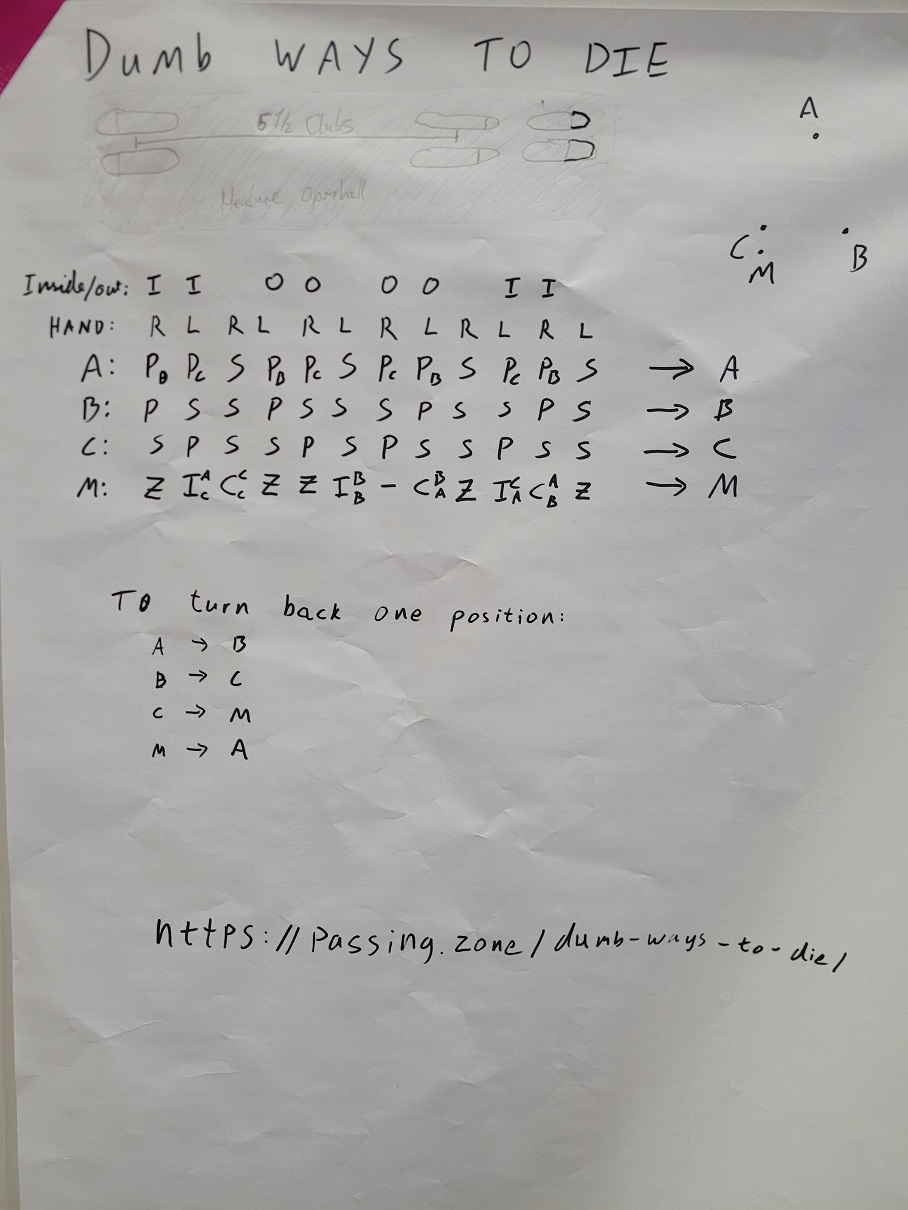 Dumb WAYS TO DIE
5 1/2 Clubs
A
C
M
B
Inside/out: I I O O O O I I
HAND: R L R L R L R L R L R L
A: P_B P_C S P_B P_C S P_C P_B S P_C P_B S → A
B: P S S P S S S P S S P S → B
C: S P S S P S P S S P S S → C
M: Z I^A_C C^C_C Z Z I^B_B - C^B_A Z I^C_A C^A_B Z → M
To turn back one position:
A → B
B → C
C → M
M → A
https://passing.zone/dumb-ways-to-die/